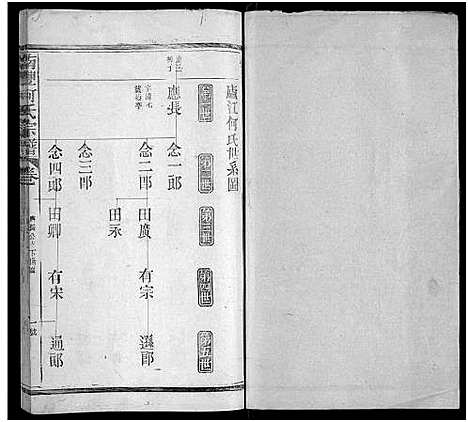 廬江何氏世系圖
第一世
第二世
第三世
第四世
第五世
應長
念一郎
念二郎
田廣
有宗
遜郎
田永
念三郎
念四郎
田卿
有宋
通郎
南豐何氏宗譜
卷